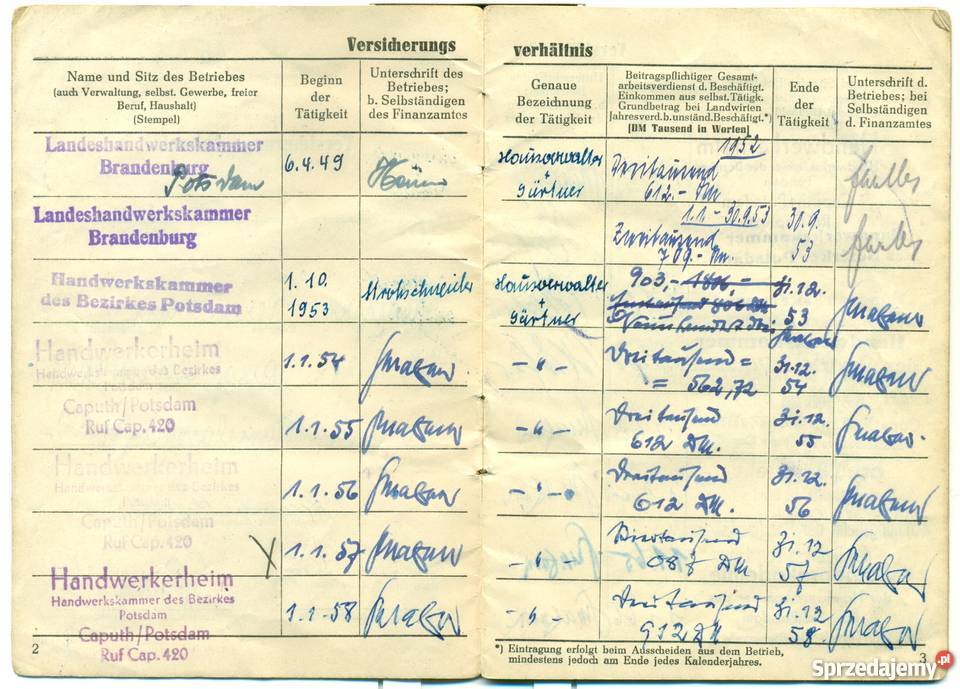 Versicherungs
Name und Sitz des Betriebes
(auch Verwaltung, selbst. Gewerbe, freier
Beruf, Haushalt)
(Stempel)
Beginn
der
Tätigkeit
Unterschrift des
Betriebes;
b. Selbständigen
des Finanzamtes
Landeshandwerkskammer
Brandenburg
Potsdam
6.4.49
Landeshandwerkskammer
Brandenburg
Handwerkskammer
des Bezirkes Potsdam
1.10.
1953
Handwerkerheim
Handwerkskammer des Bezirkes
Potsdam
Caputh/Potsdam
Ruf Cap. 420
1.1.54
1.1.55
Handwerkerheim
Handwerkskammer des Bezirkes
Potsdam
Caputh/Potsdam
Ruf Cap. 420
1.1.56
X 1.1.57
Handwerkerheim
Handwerkskammer des Bezirkes
Potsdam
Caputh/Potsdam
Ruf Cap. 420
1.1.58
2
verhältnis
Genaue
Bezeichnung
der Tätigkeit
Beitragspflichtiger Gesamt-
arbeitsverdienst d. Beschäftigt.
Einkommen aus selbst. Tätigk.
Grundbetrag bei Landwirten
Jahresverd. b. unständ. Beschäftigt.*)
[DM Tausend in Worten]
Ende
der
Tätigkeit
Unterschrift d.
Betriebes; bei
Selbständigen
d. Finanzamtes
Hausverwalter
+
Gärtner
1952
Dreitausend
612.- DM
1.1.-30.9.53
Zweitausend
709.- DM.
30.9.
53
Hausverwalter
+
Gärtner
903,- 1806,-
31.12.
53
- " -
Dreitausend =
= 562,72
31.12.
54
- " -
Dreitausend
612 DM.
31.12
55
- " -
Dreitausend
612 DM.
31.12.
56
- " -
Viertausend
087 DM
31.12
57
- " -
Dreitausend
912 DM
31.12
58.
*) Eintragung erfolgt beim Ausscheiden aus dem Betrieb,
mindestens jedoch am Ende jedes Kalenderjahres.
3
Sprzedajemy.pl